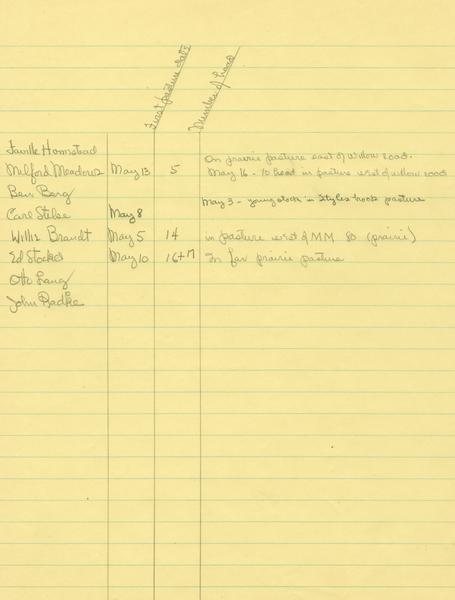 First pasture date
Number of head
Faville Homestead
On prairie pasture east of willow road.
Milford Meadows May 13 5 May 16 - 10 head in pasture west of willow road
Ben Berg
May 3 - young stock in Styles hook pasture
Carl Stelse May 8
Willis Brandt May 5 14 in pasture west of MM 80 (prairie)
Ed Stocke May 10 16+M In far prairie pasture
Otto Lang
John Radke